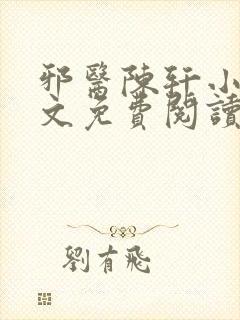 邪醫陳軒小
文免費閱讀
劉有飛